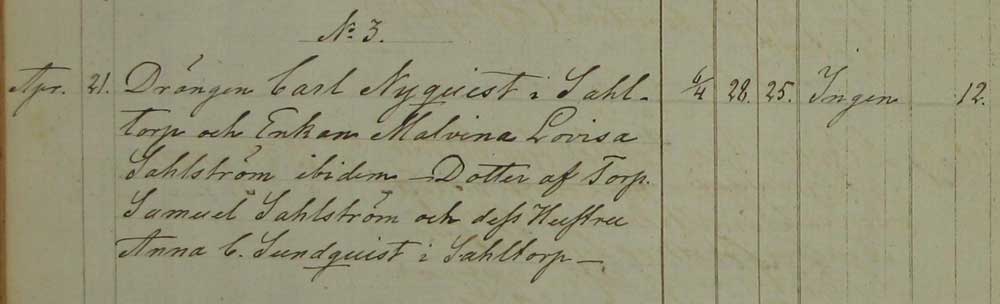 No 3.
Apr. 21. Drängen Carl Nyquist i Sahl- 6/4 28. 25. Ingen 12.
torp och Enkan Malvina Lovisa
Sahlström ibidem – Dotter af Torp.
Samuel Sahlström och dess Hustru
Anna C. Sundquist i Sahltorp –